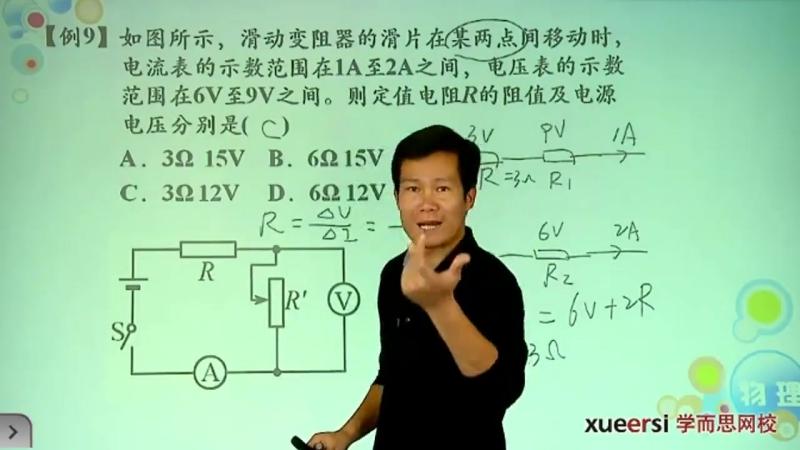 【例9】如图所示，滑动变阻器的滑片在某两点间移动时，
电流表的示数范围在1A至2A之间，电压表的示数
范围在6V至9V之间。则定值电阻R的阻值及电源
电压分别是( C )
A．3Ω 15V B．6Ω 15V
C．3Ω 12V D．6Ω 12V
3V 9V 1A
R =3Ω R₁
R = ΔU/ΔI =
6V 2A
R₂
= 6V+2R
3Ω
R
R′
V
S
A
物理
xueersi 学而思网校